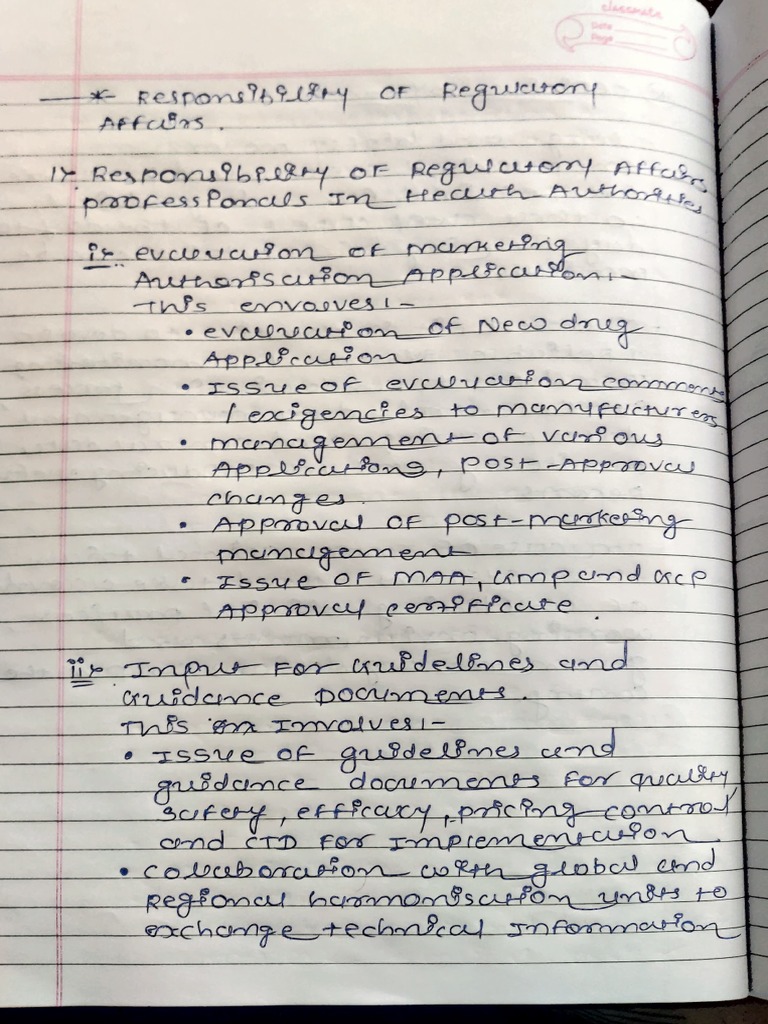 classmate
Date
Page
* Responsibility of Regulatory
Affairs.
1) Responsibility of Regulatory Affairs
professionals In Health Authorities
i) evaluation of marketing
Authorisation Application:-
This envolves:-
• evaluation of New drug
Application
• Issue of evaluation comments
/ exigencies to manufacturers
• management of various
Applications, post-Approval
changes.
• Approval of post-marketing
management
• Issue of MAA, GMP and GCP
Approval certificate.
ii) Input For Guidelines and
Guidance Documents.
This Involves:-
• Issue of guidelines and
guidance documents for quality,
safety, efficacy, pricing control
and CTD for Implementation
• Collaboration with global and
Regional harmonisation units to
exchange technical Information